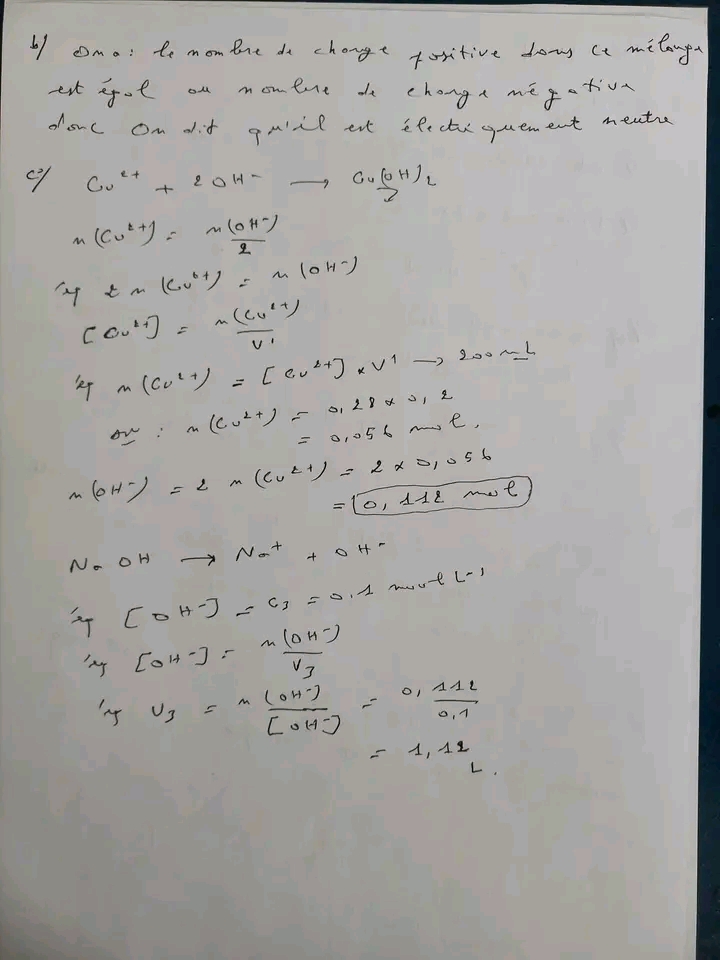 b/ On a : le nombre de charge positive dans ce mélange
est égal au nombre de charge négative
donc On dit qu'il est électriquement neutre
c°/ Cu²⁺ + 2 OH⁻ → Cu(OH)₂
n(Cu²⁺) = n(OH⁻)/2
2 n(Cu²⁺) = n(OH⁻)
[Cu²⁺] = n(Cu²⁺)/V'
n(Cu²⁺) = [Cu²⁺] × V' → 200 mL
AN : n(Cu²⁺) = 0,28 × 0,2
= 0,056 mol.
n(OH⁻) = 2 n(Cu²⁺) = 2 × 0,056
= 0,112 mol
NaOH → Na⁺ + OH⁻
[OH⁻] = C₃ = 0,1 mol L⁻¹
[OH⁻] = n(OH⁻)/V₃
V₃ = n(OH⁻)/[OH⁻] = 0,112/0,1
= 1,12 L.